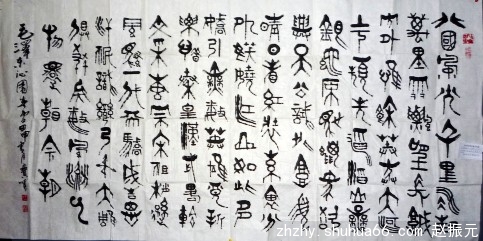 北國風光千里冰封
萬里雪飄望長城
內外惟餘莽莽大河
上下頓失滔滔山舞
銀蛇原馳蠟象欲
與天公試比高須
晴日看紅裝素裹分
外妖嬈江山如此多
嬌引無數英雄競折
腰惜秦皇漢武略輸
文采唐宗宋祖稍遜
風騷一代天驕成吉思
汗只識彎弓射大雕
俱往矣數風流人
物還看今朝
毛澤東沁園春
zhzhy.shuhua66.com 赵振元